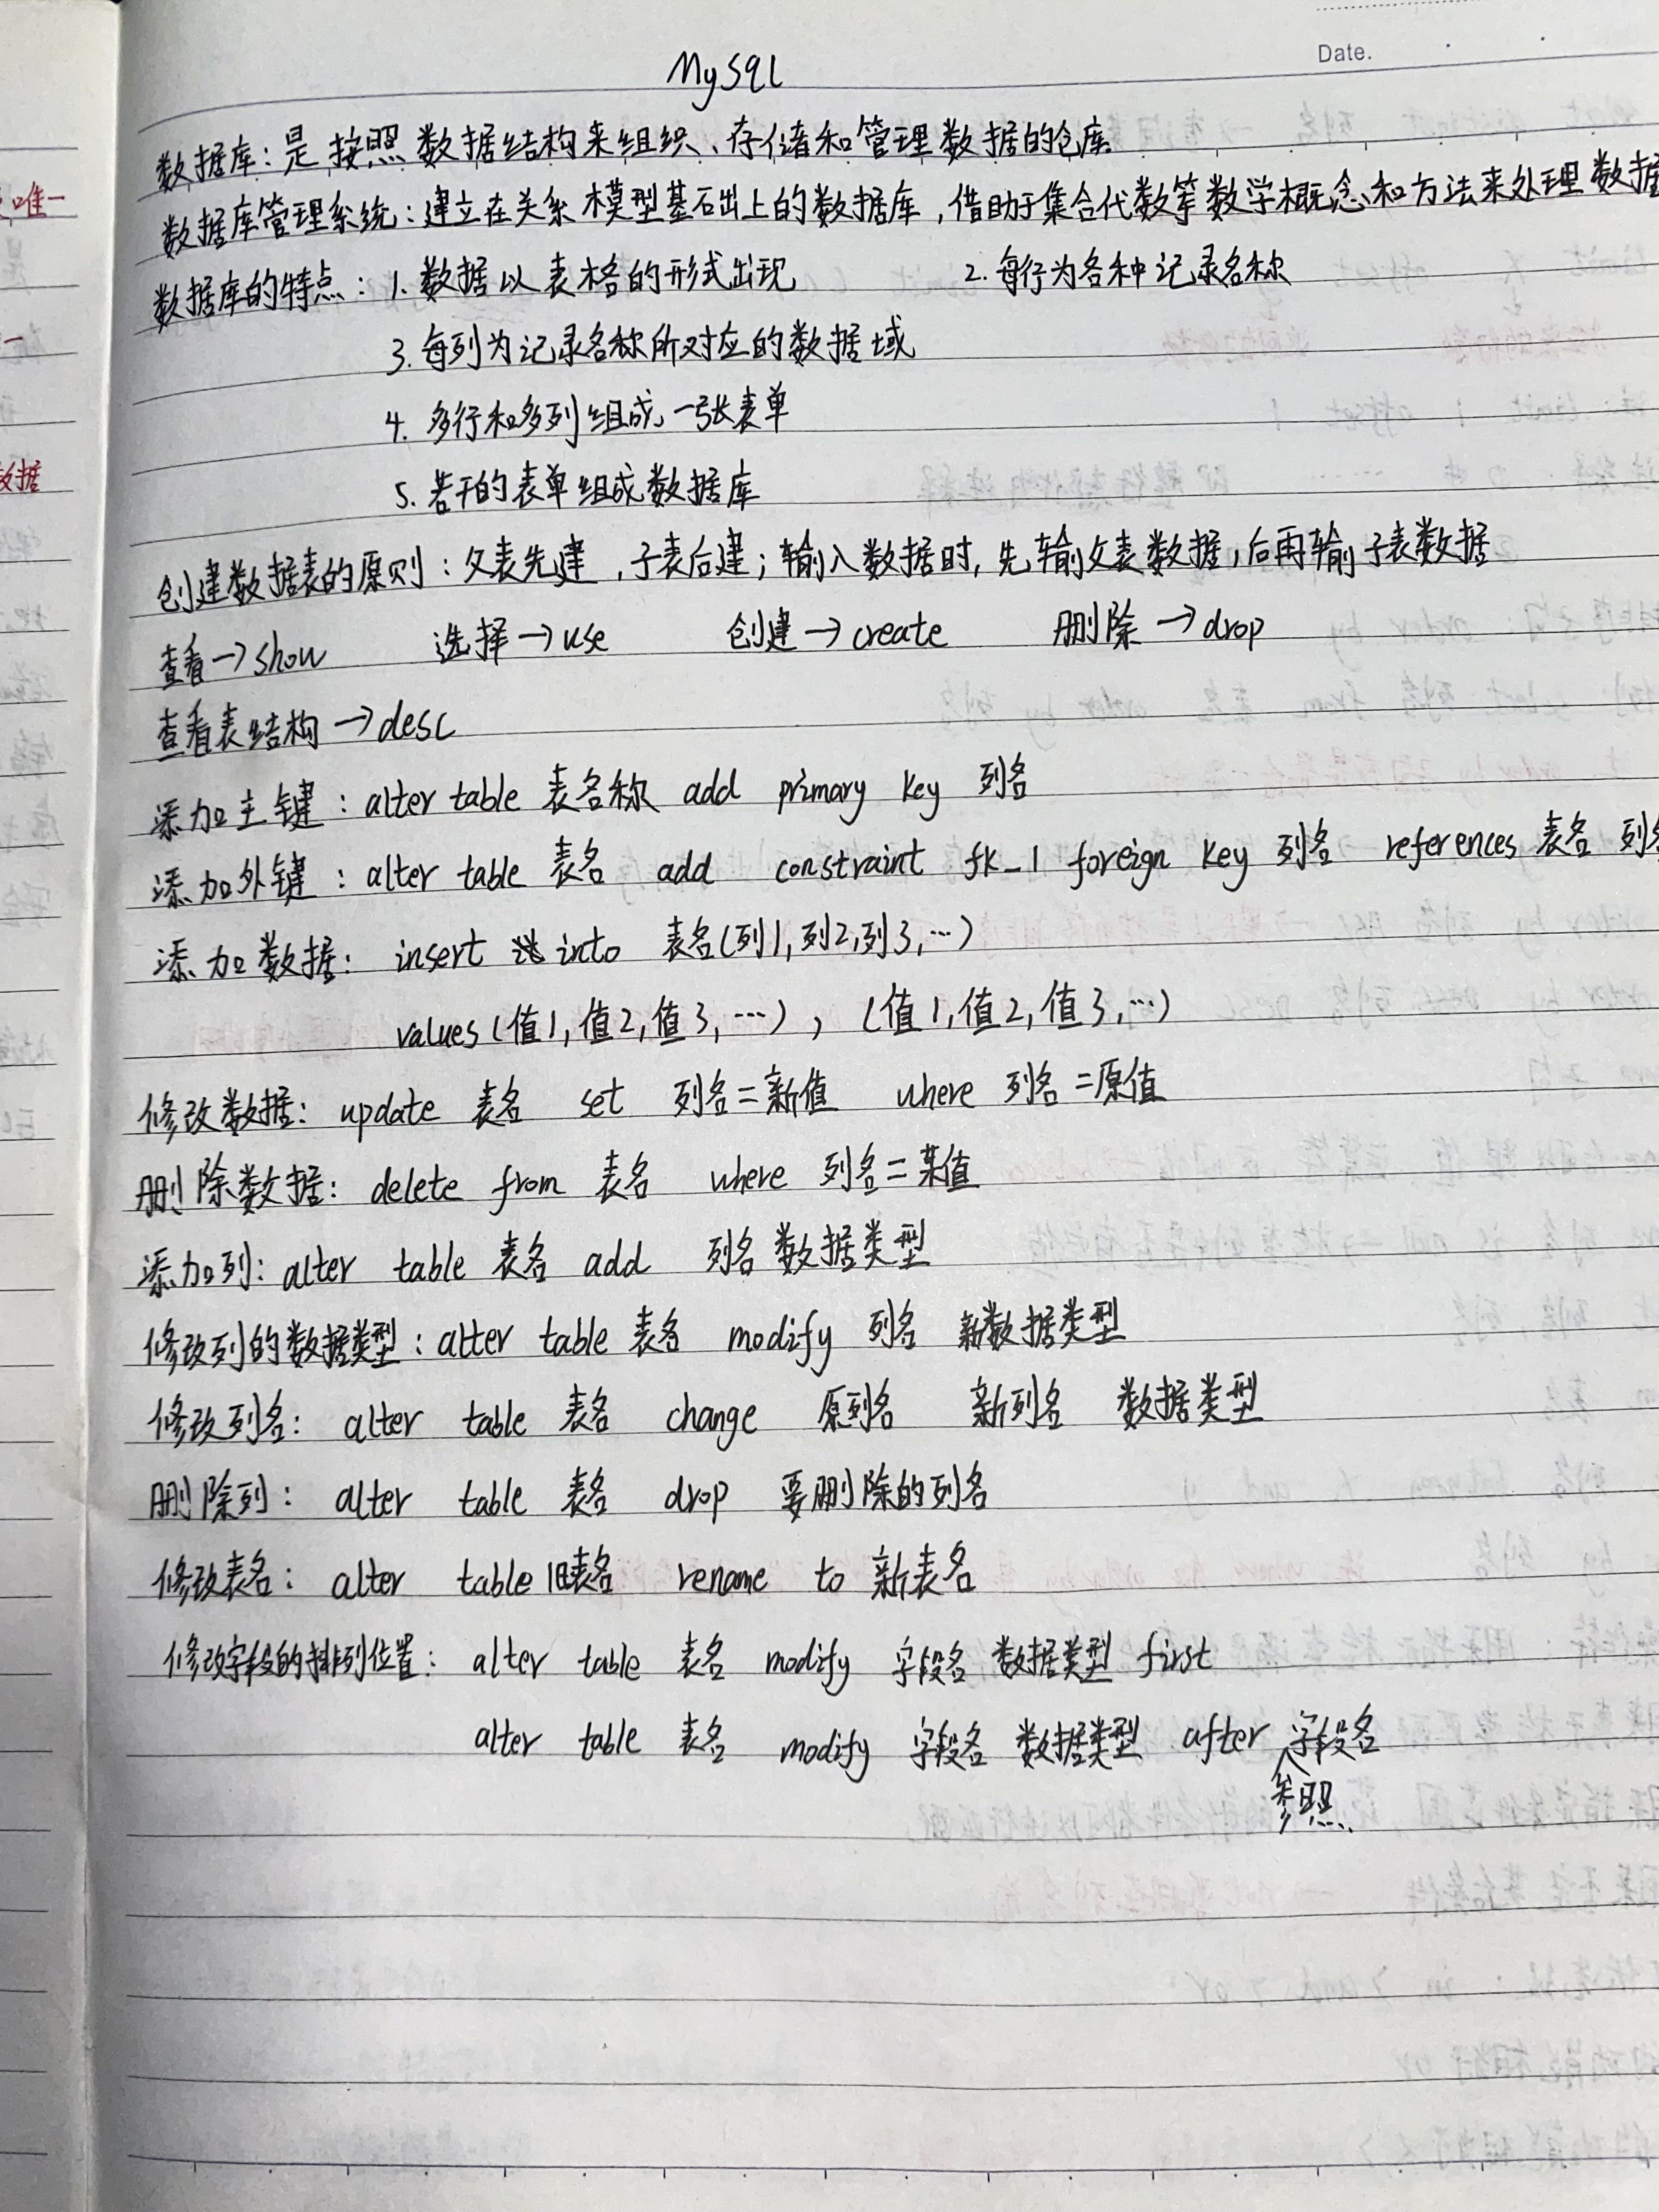 Date.
MySql
数据库：是按照数据结构来组织、存储和管理数据的仓库
数据库管理系统：建立在关系模型基础上的数据库，借助于集合代数等数学概念和方法来处理数据
数据库的特点：1. 数据以表格的形式出现 2. 每行为各种记录名称
3. 每列为记录名称所对应的数据域
4. 多行和多列组成一张表单
5. 若干的表单组成数据库
创建数据表的原则：父表先建，子表后建；输入数据时，先输父表数据，后再输子表数据
查看→show 选择→use 创建→create 删除→drop
查看表结构→desc
添加主键：alter table 表名称 add primary key 列名
添加外键：alter table 表名 add constraint fk_1 foreign key 列名 references 表名 列名
添加数据： insert into 表名(列1,列2,列3,…)
values(值1,值2,值3,…)，(值1,值2,值3,…)
修改数据：update 表名 set 列名=新值 where 列名=原值
删除数据：delete from 表名 where 列名=某值
添加列：alter table 表名 add 列名 数据类型
修改列的数据类型：alter table 表名 modify 列名 新数据类型
修改列名：alter table 表名 change 原列名 新列名 数据类型
删除列：alter table 表名 drop 要删除的列名
修改表名：alter table 旧表名 rename to 新表名
修改字段的排列位置：alter table 表名 modify 字段名 数据类型 first
alter table 表名 modify 字段名 数据类型 after 字段名
参照
唯一
数据